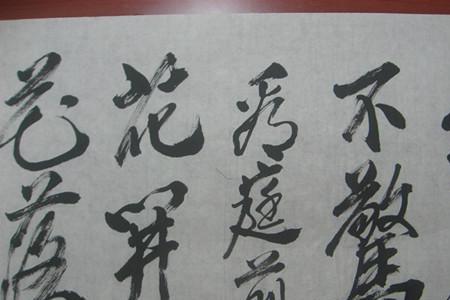 不驚
看庭前
花開
花落